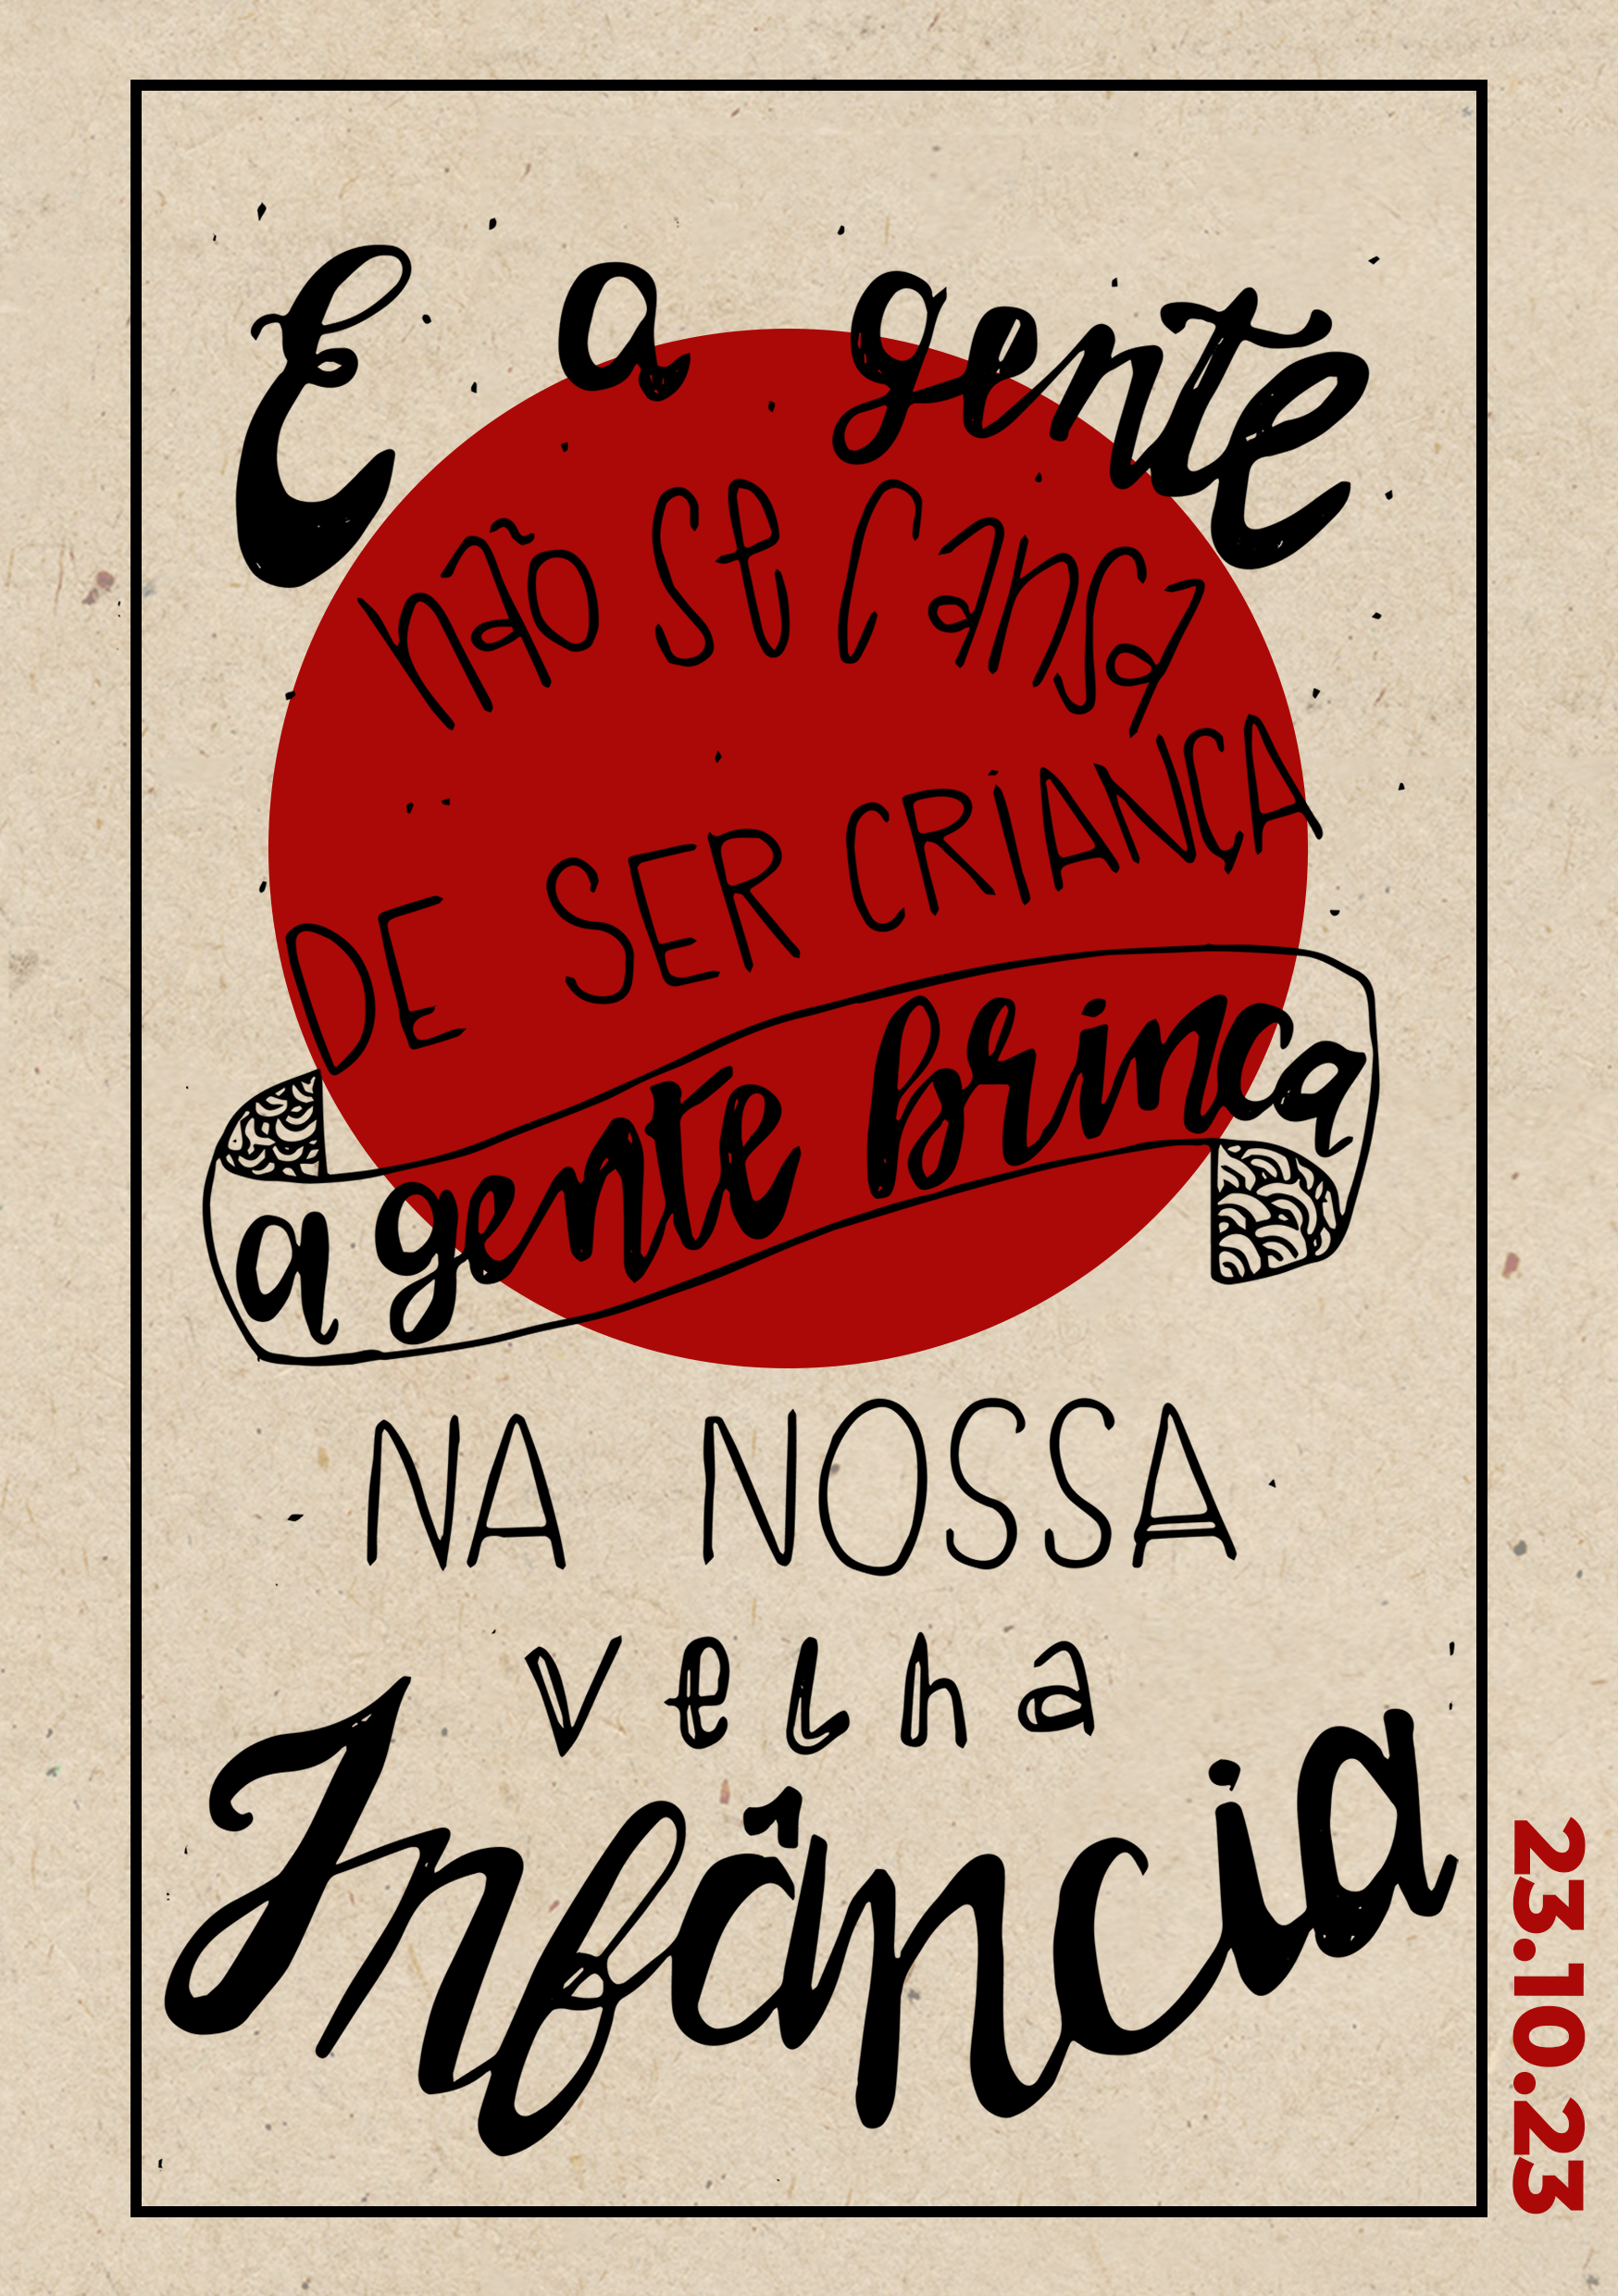 E a gente
não se cansa
DE SER CRIANÇA
a gente brinca
NA NOSSA
velha
Infância
23.10.23